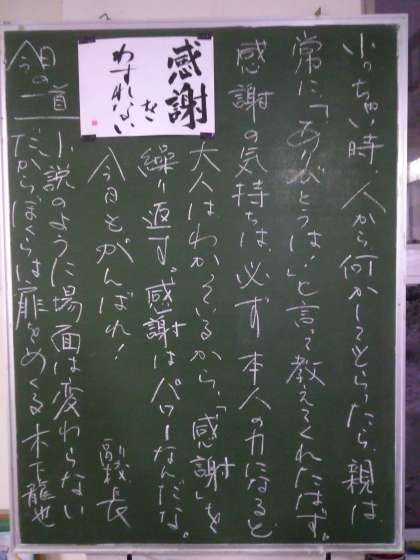 小っちゃい時、人から何かしてもらったら、親は
常に、「ありがとうは!」と言って教えてくれたはず。
感謝の気持ちは、必ず本人の力になると
大人はわかっているから、「感謝」を
繰り返す。感謝はパワーなんだな。
今日もがんばれ!
副校長
感謝
を
わすれない
今日の一首
小説のように場面は変わらない
だからぼくらは扉をめくる 木下龍也